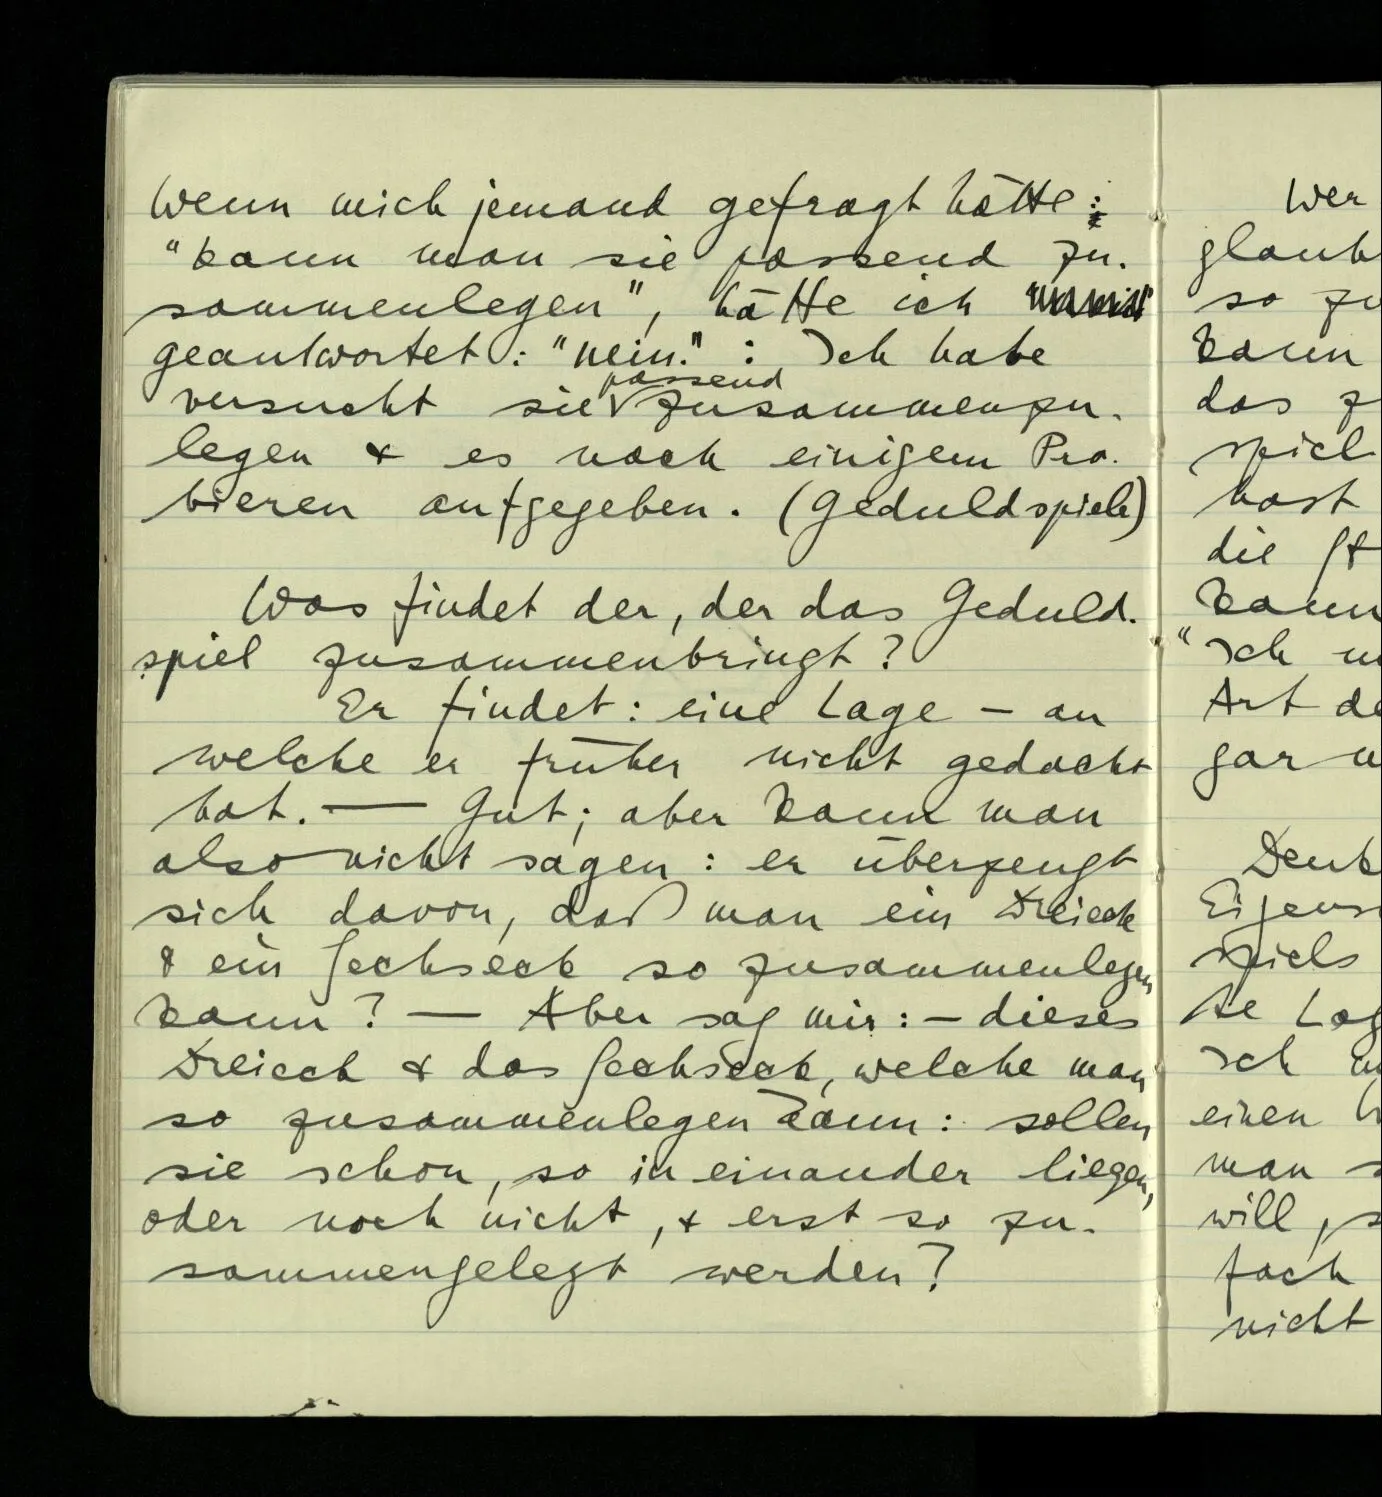 Wenn mich jemand gefragt hätte:
"kann man sie passend zu-
sammenlegen", hätte ich
geantwortet: "nein." : Ich habe
passend
versucht sie zusammenzu-
legen & es nach einigem Pro-
bieren aufgegeben. (Geduldspiele)
Was findet der, der das Geduld-
spiel zusammenbringt?
Er findet: eine Lage – an
welche er früher nicht gedacht
hat. — Gut; aber kann man
also nicht sagen: er überzeugt
sich davon, daß man ein Dreieck
& ein Sechseck so zusammenlegen
kann? — Aber sag mir: – dieses
Dreieck & das Sechseck, welche man
so zusammenlegen kann: sollen
sie schon, so in einander liegen,
oder noch nicht, & erst so zu-
sammengelegt werden?
Wer
glaub
so zu
kann
das z
spiel
hast
die
kann
"Ich
Art de
gar
Denk
Eigens
spiels
te Lag
Ich
einen
man s
will, s
fach
nicht